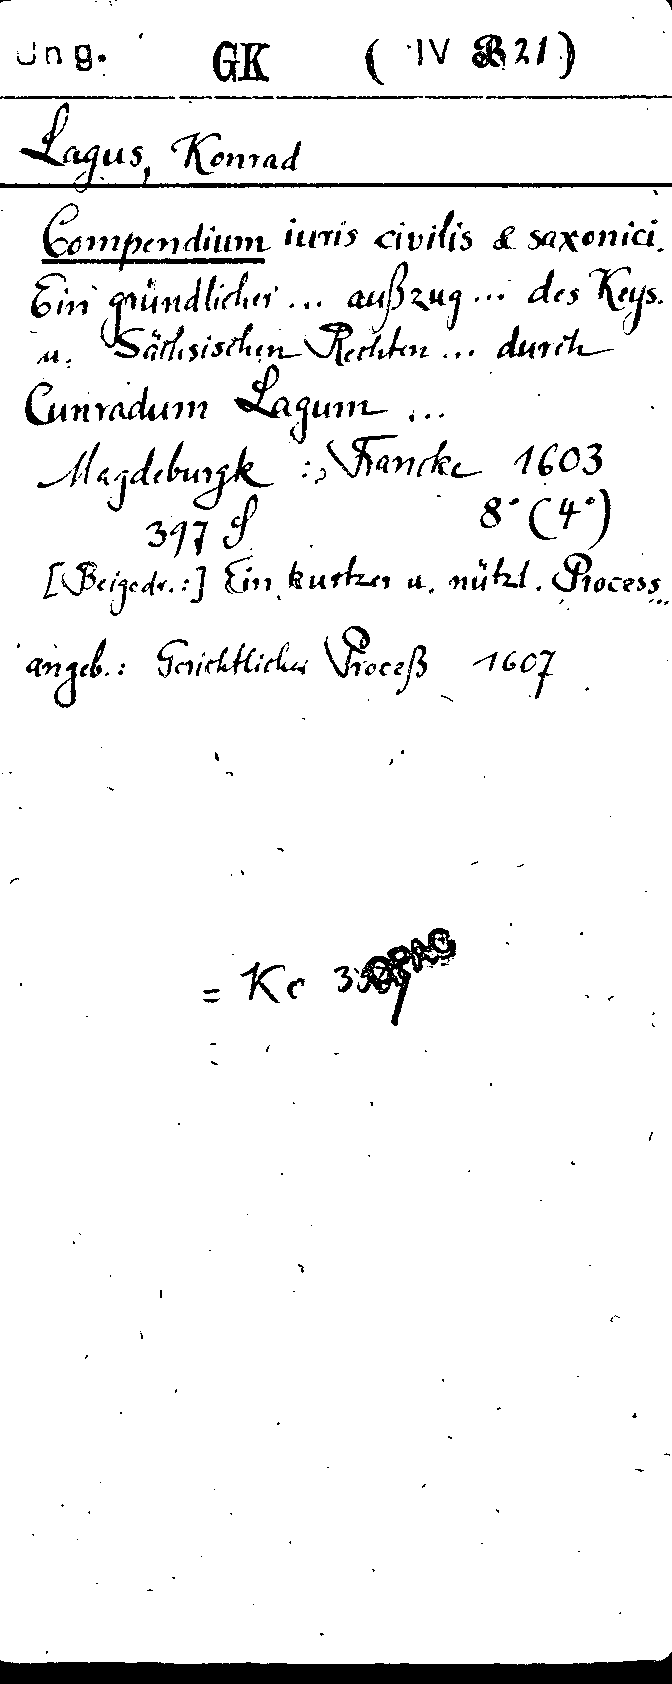 Ung. GK ( IV B 21)
Lagus, Konrad
Compendium iuris civilis & saxonici.
Ein gründlicher ... außzug ... des Keys.
u. Sächsischen Rechten ... durch
Cunradum Lagum ...
Magdeburgk :, Francke 1603
397 S 8° (4°)
[Beigedr.:] Ein kurtzer u. nützl. Process...
angeb.: Gerichtlicher Proceß 1607
= Kc
OPAC